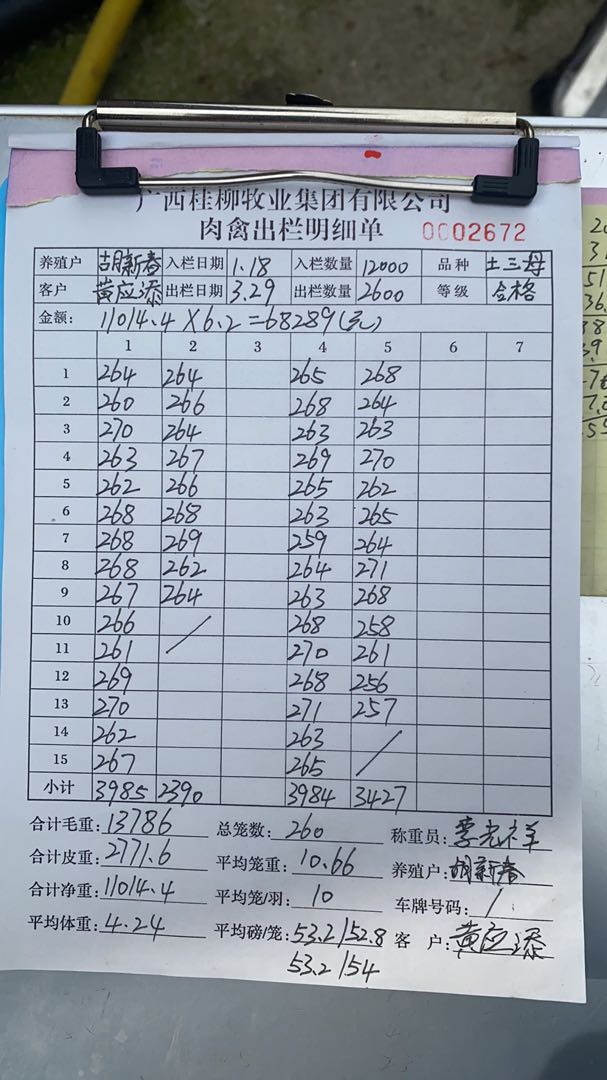 广西桂柳牧业集团有限公司
肉禽出栏明细单 0002672
养殖户 胡新春 入栏日期 1.18 入栏数量 12000 品种 土三母
客户 黄应添 出栏日期 3.29 出栏数量 2600 等级 合格
金额: 11014.4 X 6.2 = 68289(元)
1 2 3 4 5 6 7
1 264 264 265 268
2 260 266 268 264
3 270 264 263 263
4 263 267 269 270
5 262 266 265 262
6 268 268 263 265
7 268 269 259 264
8 268 262 264 271
9 267 264 263 268
10 266 / 268 258
11 261 270 261
12 269 268 256
13 270 271 257
14 262 263 /
15 267 265
小计 3985 2390 3984 3427
合计毛重: 13786 总笼数: 260 称重员: 李光祥
合计皮重: 2771.6 平均笼重: 10.66 养殖户: 胡新春
合计净重: 11014.4 平均笼/羽: 10 车牌号码: /
平均体重: 4.24 平均磅/笼: 53.2/52.8 客户: 黄应添
53.2/54